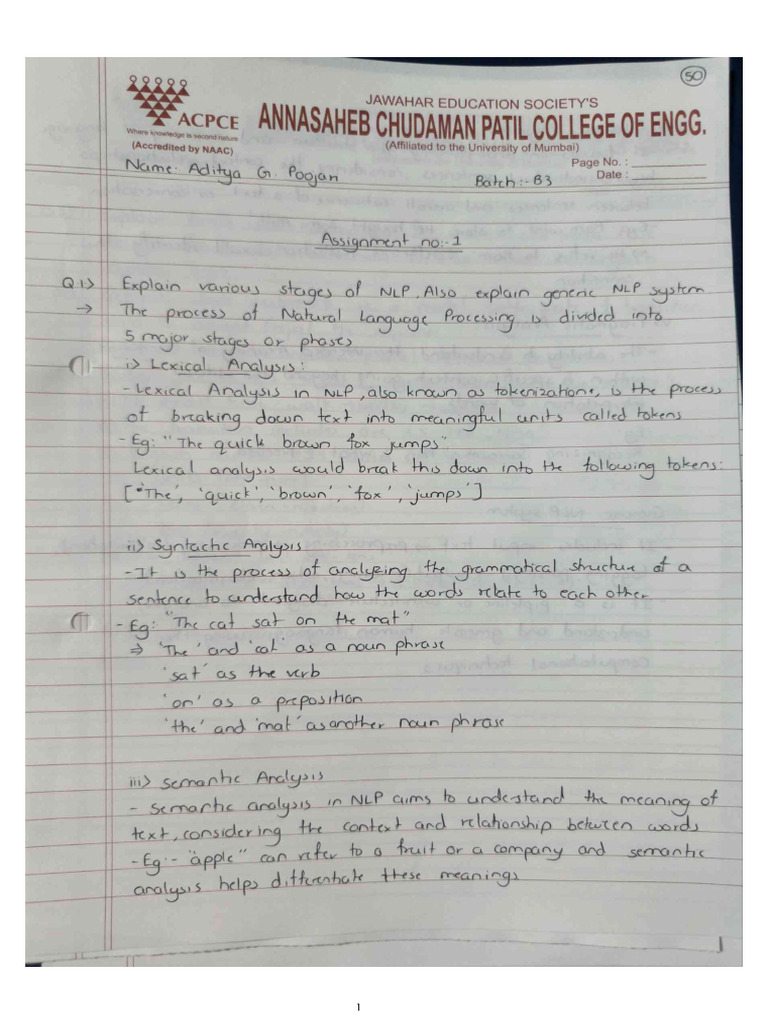 50
JAWAHAR EDUCATION SOCIETY'S
ANNASAHEB CHUDAMAN PATIL COLLEGE OF ENGG.
(Affiliated to the University of Mumbai)
ACPCE
Where knowledge is second nature
(Accredited by NAAC)
Page No. :
Date :
Name: Aditya G. Poojari
Batch:- B3
Assignment no:-1
Q.1) Explain various stages of NLP. Also explain generic NLP system
→ The process of Natural Language Processing is divided into
5 major stages or phases
i) Lexical Analysis:
- Lexical Analysis in NLP, also known as tokenization, is the process
of breaking down text into meaningful units called tokens
- Eg: "The quick brown fox jumps"
Lexical analysis would break this down into the following tokens:
['The', 'quick', 'brown', 'fox', 'jumps']
ii) Syntactic Analysis
- It is the process of analyzing the grammatical structure of a
sentence to understand how the words relate to each other
- Eg: "The cat sat on the mat"
⇒ 'The' and 'cat' as a noun phrase
'sat' as the verb
'on' as a preposition
'the' and 'mat' as another noun phrase
iii) Semantic Analysis
- Semantic analysis in NLP aims to understand the meaning of
text, considering the context and relationship between words
- Eg:- "apple" can refer to a fruit or a company and semantic
analysis helps differentiate these meanings
1